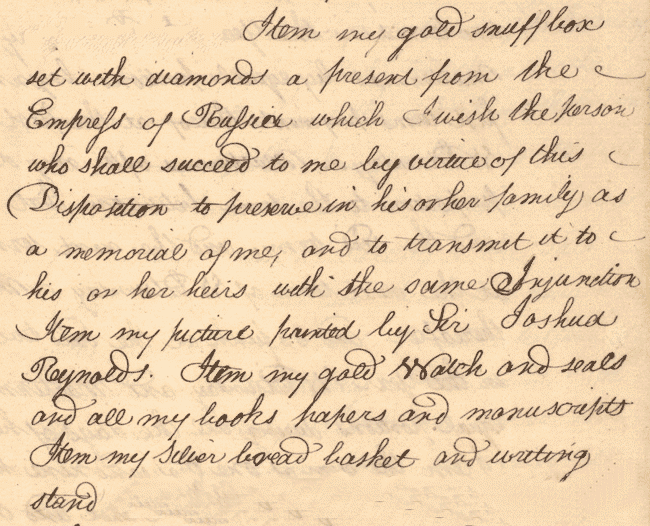 Item my gold snuff box
set with diamonds a present from the
Empress of Russia which I wish the person
who shall succeed to me by virtue of this
Disposition to preserve in his or her family as
a memorial of me, and to transmit it to
his or her heirs with the same Injunction
Item my picture painted by Sir Joshua
Reynolds. Item my gold Watch and seals
and all my books papers and manuscripts
Item my silver bread basket and writing
stand